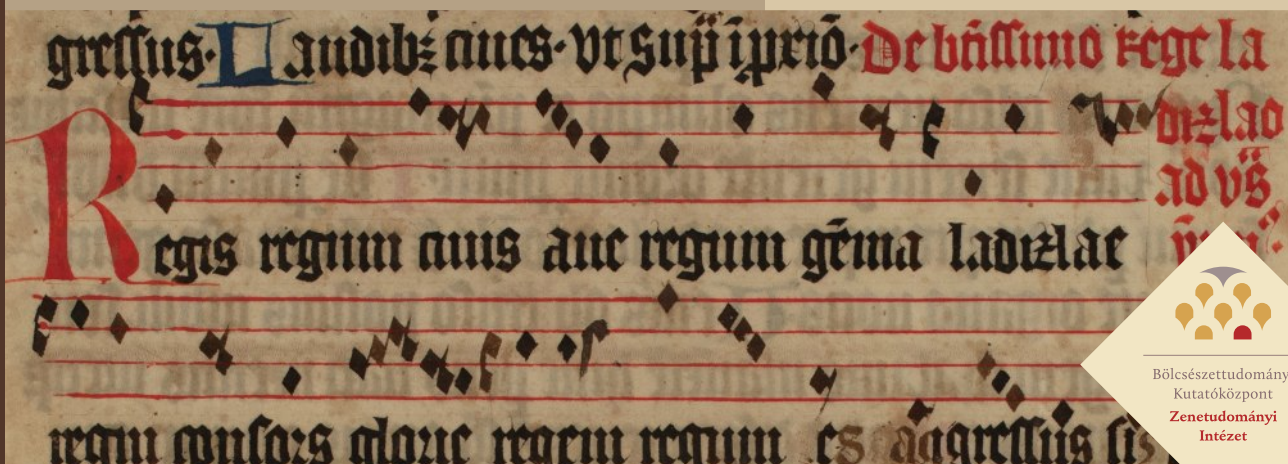 gressus· Laudibz ciues· vt Sup̄ ip̄rio· De btissimo rege la
dizlao
ad vs̄
Regis regum ciuis aue regum gēma ladizlae
regni consors glorie regem regum es aggressus sis
Bölcsészettudomány
Kutatóközpont
Zenetudományi
Intézet